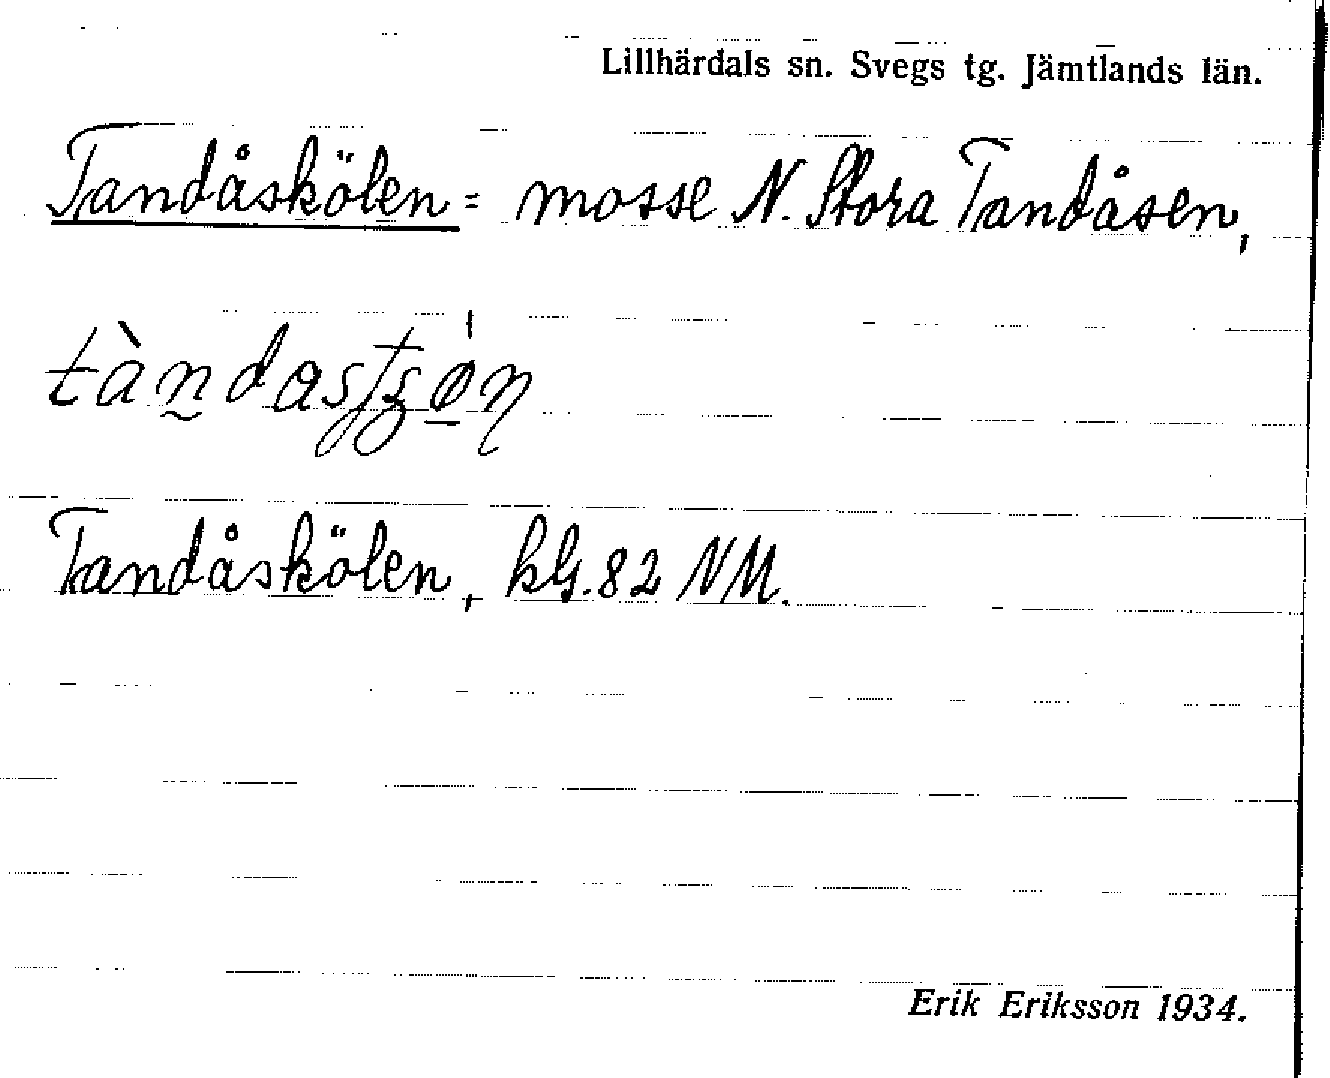 Lillhärdals sn. Svegs tg. Jämtlands län.
Tandåskölen = mosse N. Stora Tandåsen,
Tandåskölen, kbl. 82 NM.
Erik Eriksson 1934.